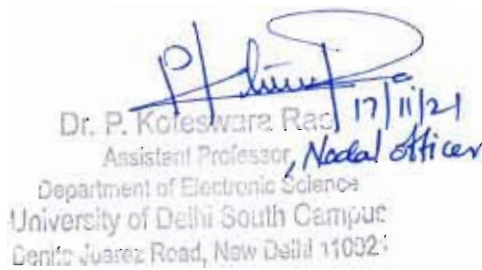 17/11/21
Dr. P. Koteswara Rao
Assistant Professor, Nodal Officer
Department of Electronic Science
University of Delhi South Campus
Benito Juarez Road, New Delhi 110021